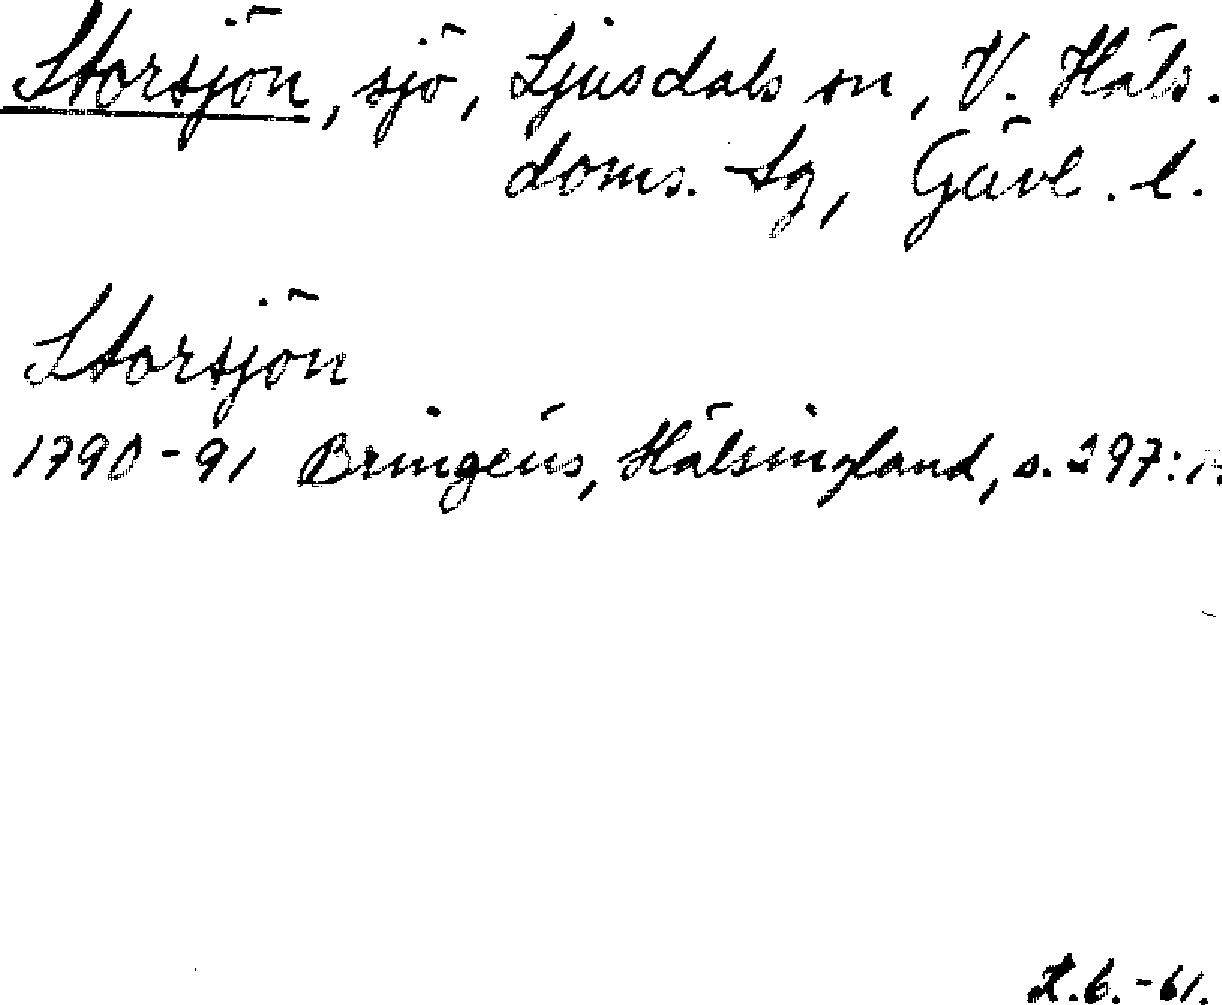 Storsjön, sjö, Ljusdals sn, V. Häls.
doms. sg, Gävl. l.
Storsjön
1790-91 Bringéus, Hälsingland, s. 297:
61.